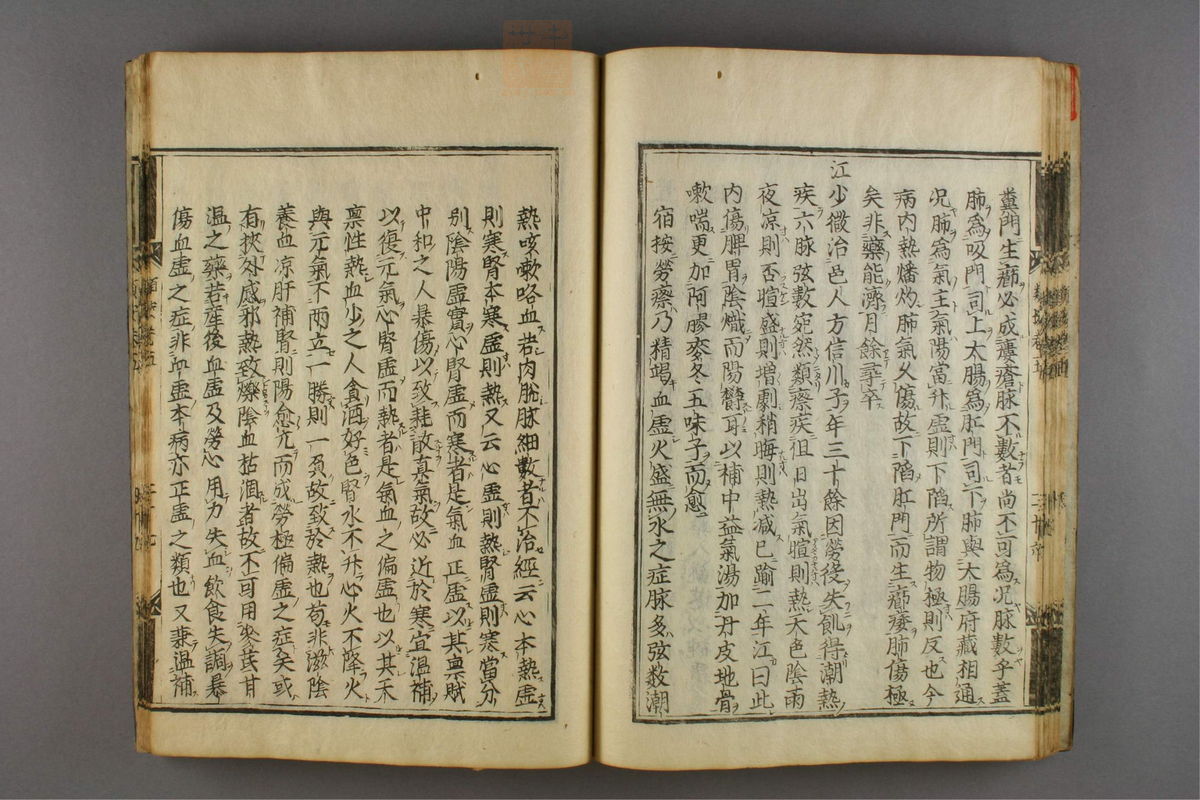 糞門生癤必成瘻瘡脉不數者尚不可爲况脉數乎蓋
肺爲吸門司上太腸爲肛門司下肺與大腸府藏相通
况肺爲氣主氣陽富升虚則下陷所謂物極則反也今
病内熱燔灼肺氣久傷故下陷肛門而生癤瘻肺傷極
矣非藥能濟月餘果卒
江少微治邑人方信川子年三十餘因勞役失飢得潮熱
疾六脉弦數宛然類瘵疾但日出氣暄則熱天色陰雨
夜凉則否暄盛則増劇稍晦則熱减已踰二年江曰此
内傷脾胃陰熾而陽欝耳以補中益氣湯加丹皮地骨
嗽喘更加阿膠麥冬五味子而愈
宿按勞瘵乃精竭血虚火盛無水之症脉多弦数潮
熱咳嗽咯血若肉脱脉細數者不治經云心本熱虚
則寒腎本寒虚則熱又云心虚則熱腎虚則寒當分
别陰陽虚實心腎虚而寒者是氣血正虚以其禀賦
中和之人暴傷以致耗散真氣故必近於寒宜温補
以復元氣心腎虚而熱者是氣血之偏虚也以其未
禀性熱血少之人貪酒好色腎水不升心火不降火
與元氣不両立一勝則一負故致於熱也苟非滋陰
養血凉肝補腎則陽愈亢而成勞極偏虚之症矣或
有挾外感邪熱致爍陰血枯涸者故不可用參芪甘
温之藥若産後血虚及勞心用力失血飲食失調暴
傷血虚之症非血虚本病亦正虚之類也又兼温補